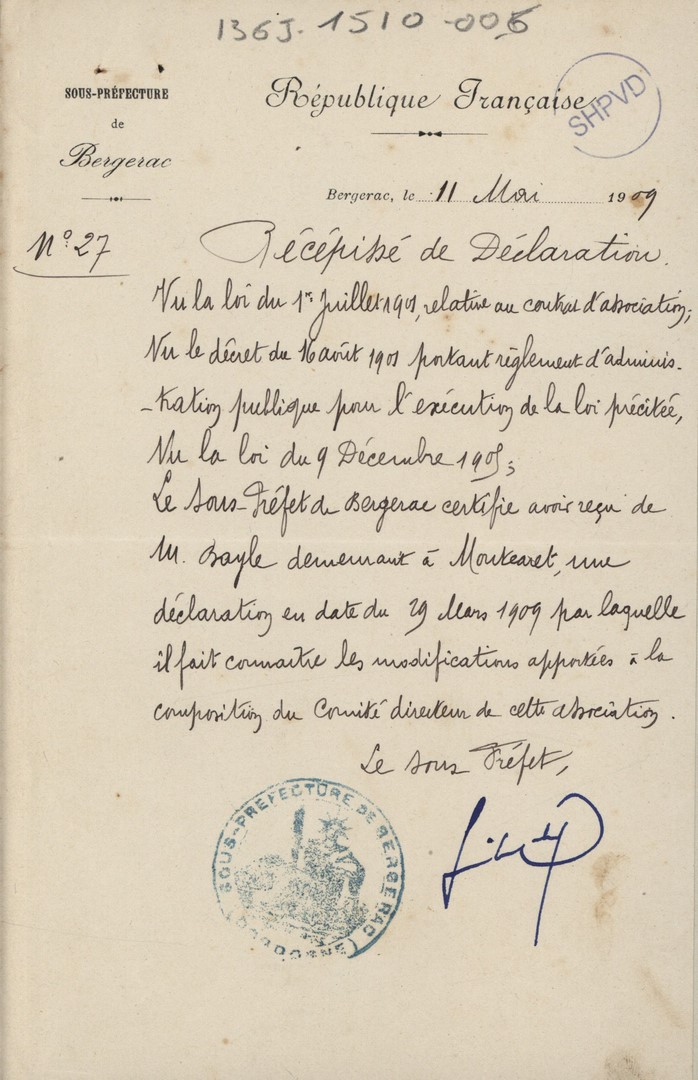 136J-1510-006
SOUS-PRÉFECTURE
de
Bergerac
République Française
SHPVD
Bergerac, le 11 Mai 1909
N° 27
Récépissé de Déclaration.
Vu la loi du 1er Juillet 1901, relative au contrat d'association;
Vu le décret du 16 août 1901 portant règlement d'adminis-
-tration publique pour l'exécution de la loi précitée,
Vu la loi du 9 Décembre 1905;
Le Sous-Préfet de Bergerac certifie avoir reçu de
M. Bayle demeurant à Montcaret, une
déclaration en date du 29 Mars 1909 par laquelle
il fait connaître les modifications apportées à la
composition du Comité directeur de cette association.
Le Sous Préfet,
SOUS-PRÉFECTURE DE BERGERAC (DORDOGNE)